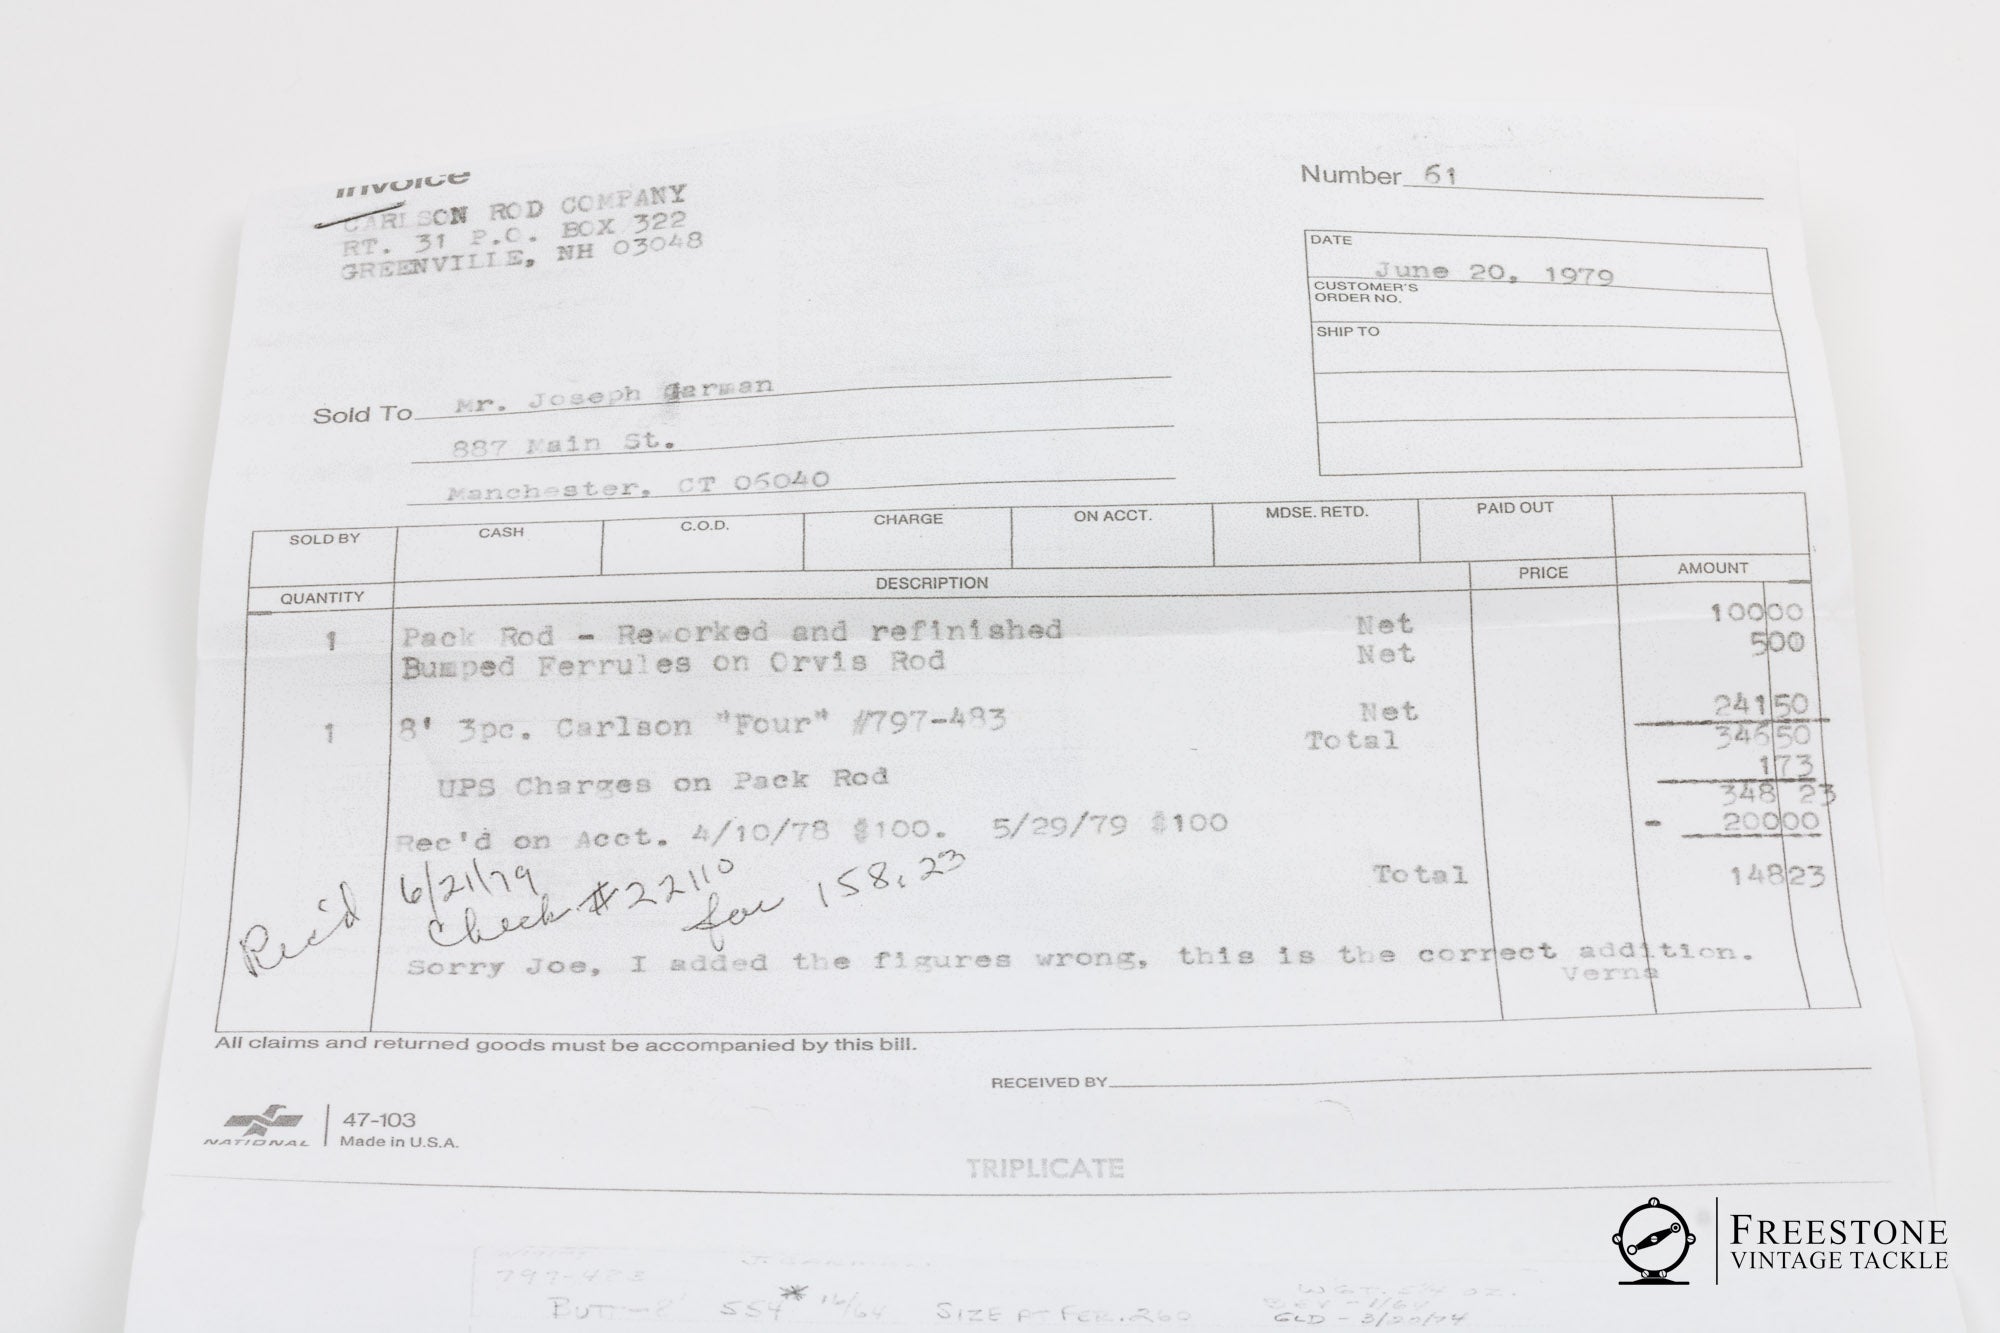 Invoice
CARLSON ROD COMPANY
RT. 31 P.O. BOX 322
GREENVILLE, NH 03048
Number 61
DATE
June 20, 1979
CUSTOMER'S
ORDER NO.
SHIP TO
Sold To Mr. Joseph Garman
887 Main St.
Manchester, CT 06040
SOLD BY CASH C.O.D. CHARGE ON ACCT. MDSE. RETD. PAID OUT
QUANTITY DESCRIPTION PRICE AMOUNT
1 Pack Rod - Reworked and refinished Net 10000
Bumped Ferrules on Orvis Rod Net 500
1 8' 3pc. Carlson "Four" #797-483 Net 24150
Total 34650
UPS Charges on Pack Rod 173
348 23
Rec'd on Acct. 4/10/78 $100. 5/29/79 $100 - 20000
Total 14823
Rec'd 6/21/79
Check #22110
for 158.23
Sorry Joe, I added the figures wrong, this is the correct addition.
Verne
All claims and returned goods must be accompanied by this bill.
RECEIVED BY
NATIONAL 47-103
Made in U.S.A.
TRIPLICATE
797-483
BUTT-8' 554* 16/64 SIZE AT FER. .260
GLD - 3/20/74
FREESTONE
VINTAGE TACKLE